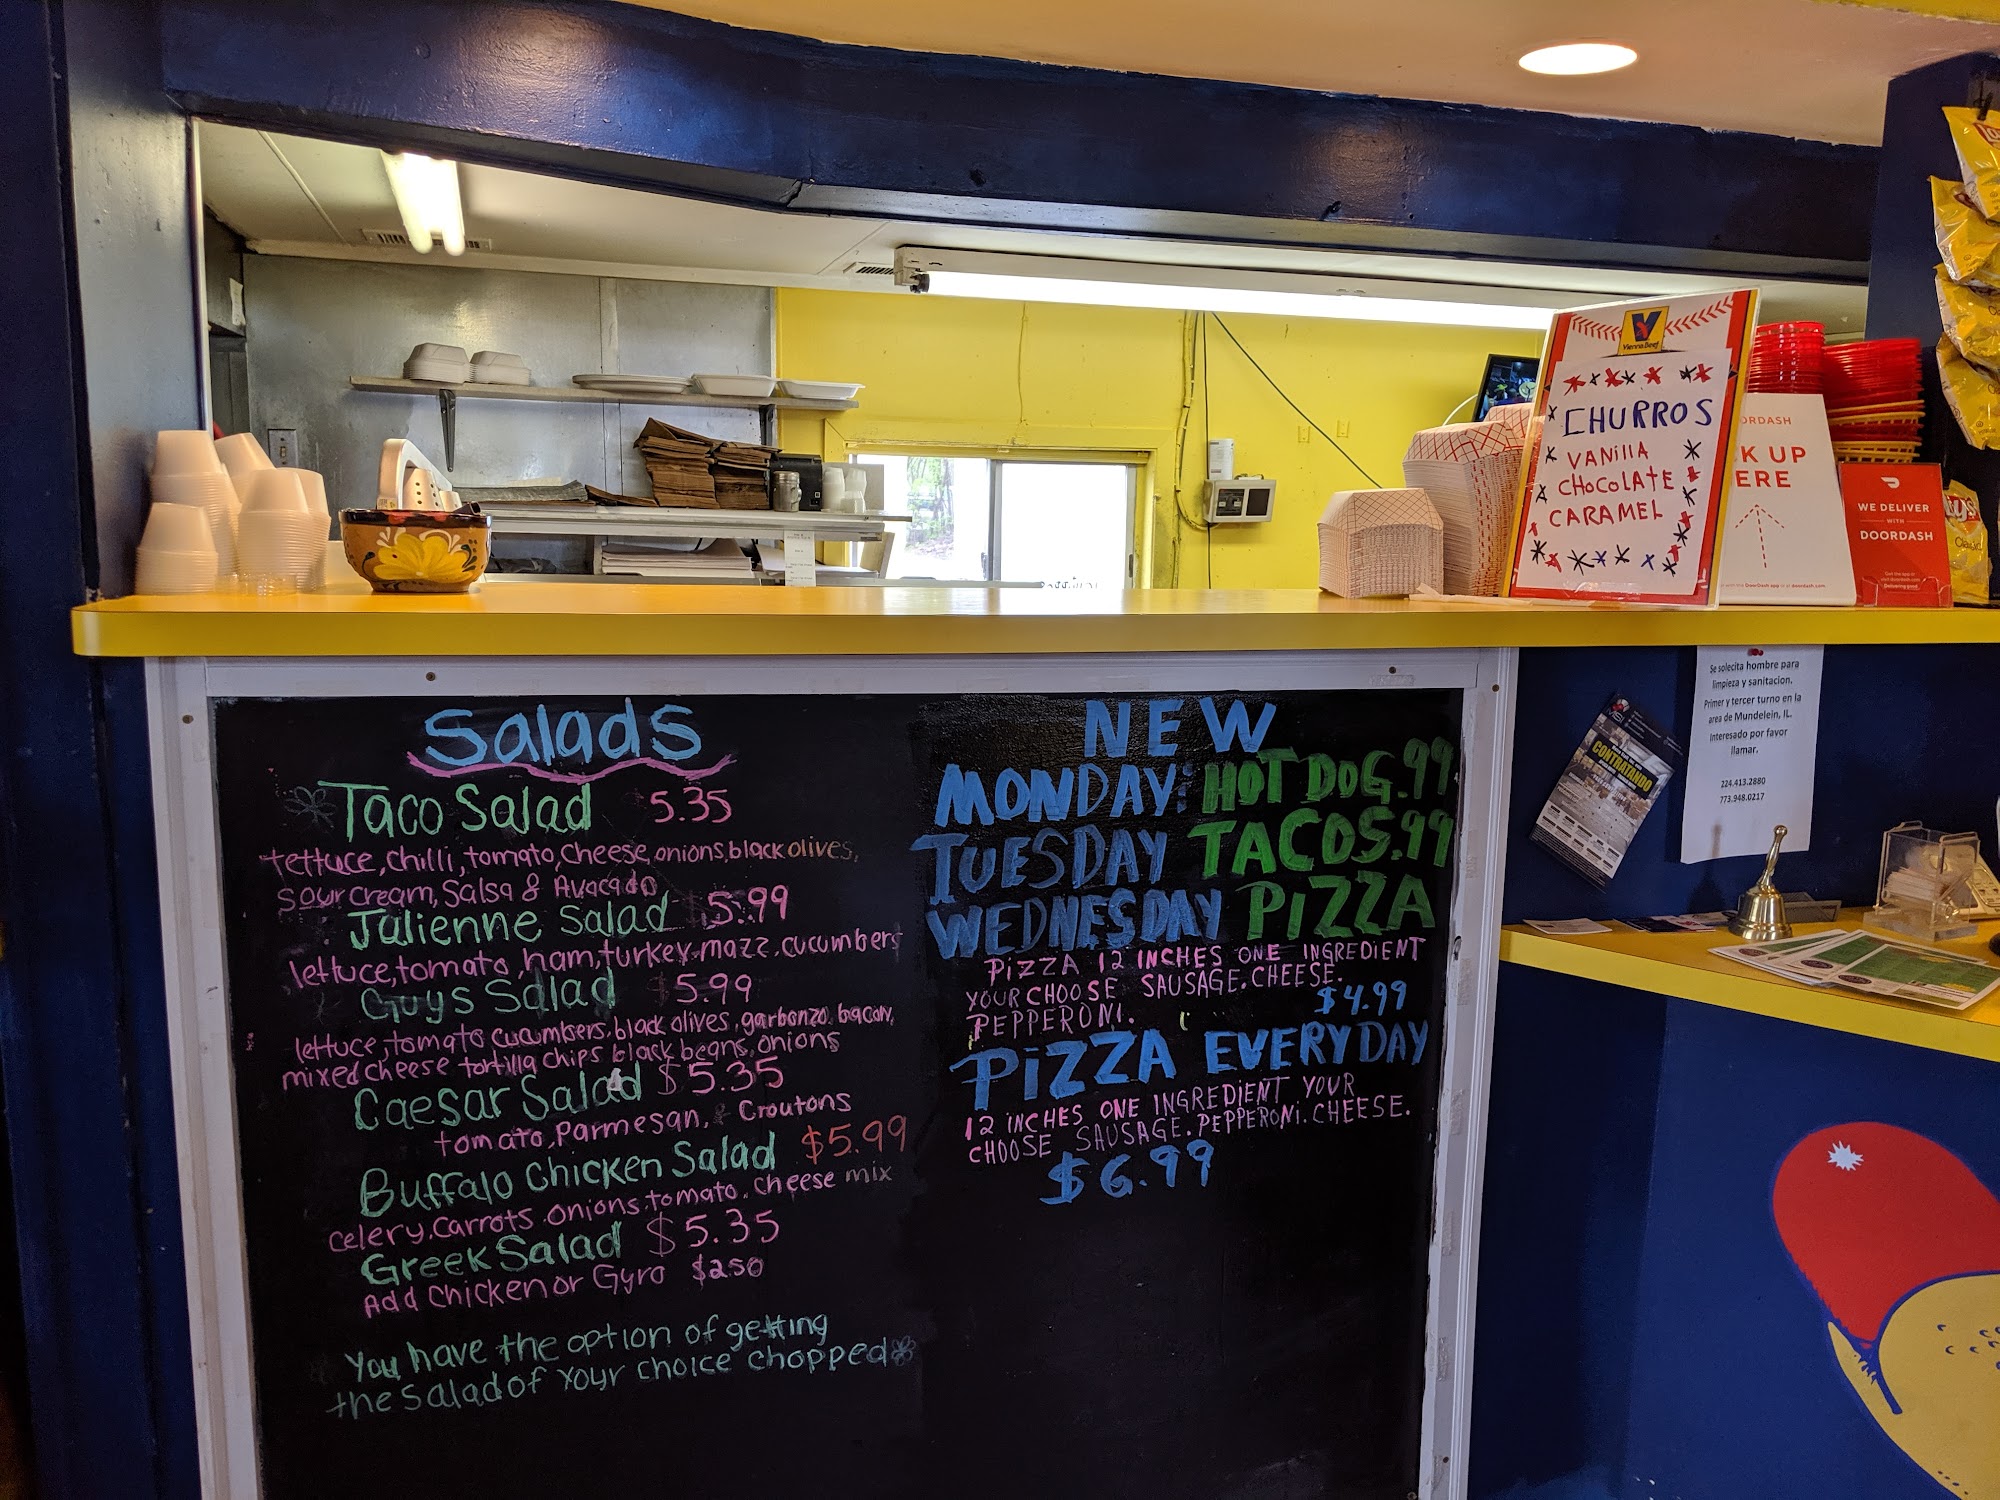 Salads
Taco Salad 5.35
tettuce, chilli, tomato, cheese, onions, black olives,
sour cream, Salsa & Avacado
Julienne Salad $5.99
lettuce, tomato, ham, turkey, mozz, cucumbers
Guys Salad $5.99
lettuce, tomato cucumbers, black olives, garbonzo, bacon,
mixed cheese tortilla chips black beans, onions
Caesar Salad $5.35
tomato, Parmesan, & Croutons
Buffalo Chicken Salad $5.99
celery, carrots, onions, tomato, cheese mix
Greek Salad $5.35
Add chicken or Gyro $2.50
You have the option of getting
the salad of your choice chopped
NEW
MONDAY: HOT DOG .99
TUESDAY TACOS .99
WEDNESDAY PIZZA
PIZZA 12 INCHES ONE INGREDIENT
YOUR CHOOSE SAUSAGE. CHEESE.
PEPPERONI. $4.99
PIZZA EVERYDAY
12 INCHES ONE INGREDIENT YOUR
CHOOSE SAUSAGE. PEPPERONI. CHEESE.
$6.99
Vienna Beef
CHURROS
VANILLA
CHOCOLATE
CARAMEL
ORDASH
K UP
ERE
WE DELIVER
WITH
DOORDASH
Get the app or
visit doordash.com
Delivering good
Se solecita hombre para
limpieza y sanitacion.
Primer y tercer turno en la
area de Mundelein, IL.
Interesado por favor
llamar.
224.413.2880
773.948.0217
CONTRATANDO